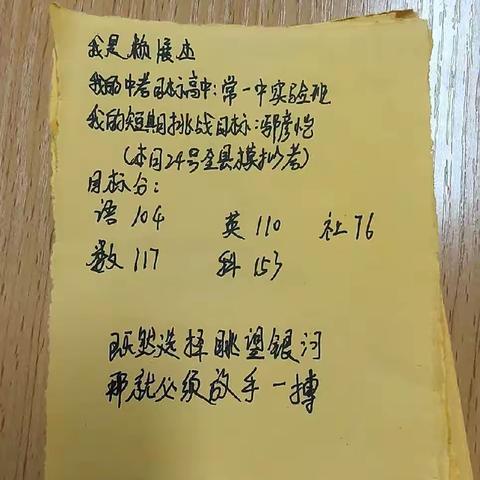 我是赖展
我的中考目标高中:常一中实验班
我的短期挑战目标:鄢彦恺
(本月24号全县模拟考)
目标分:
语104 英110 社76
数117 科153
既然选择眺望银河
那就必须放手一搏